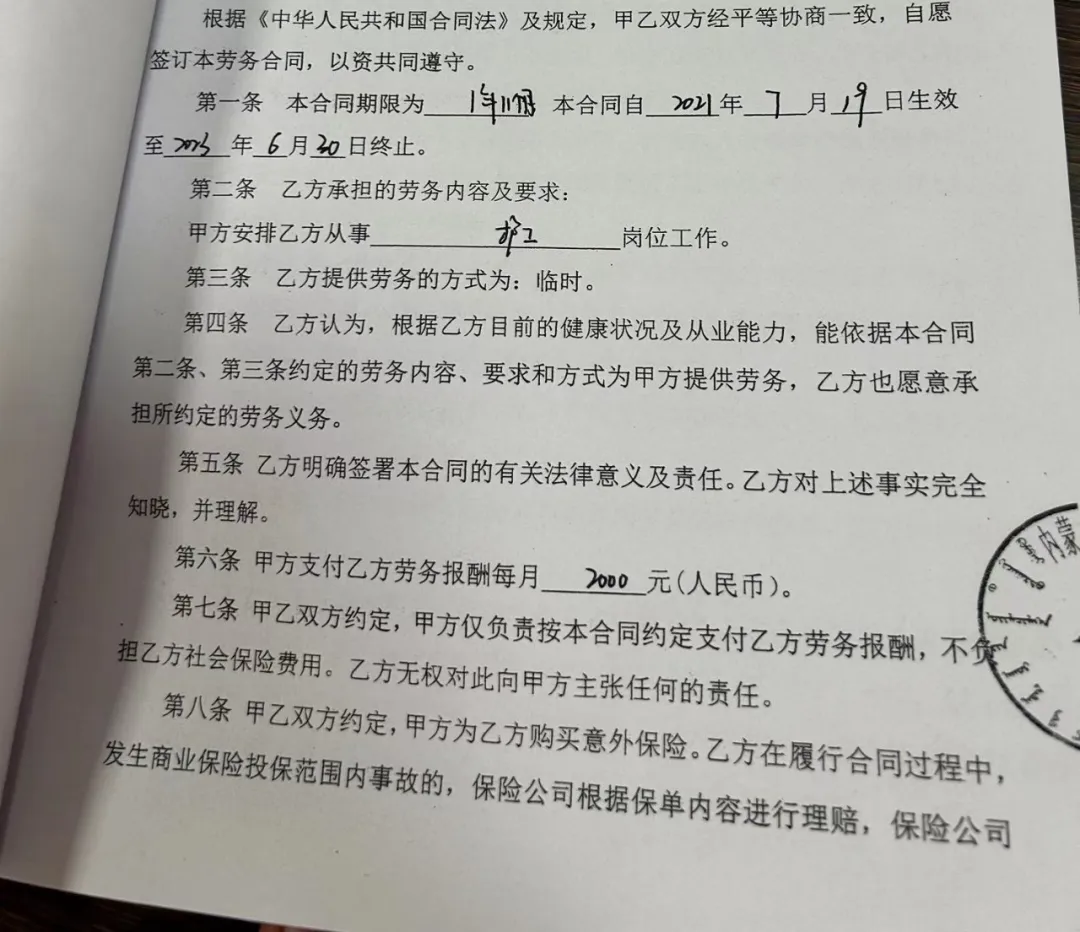 根据《中华人民共和国合同法》及规定，甲乙双方经平等协商一致，自愿
签订本劳务合同，以资共同遵守。
第一条 本合同期限为1年11个月 本合同自2021年7月19日生效
至2023年6月30日终止。
第二条 乙方承担的劳务内容及要求：
甲方安排乙方从事护工岗位工作。
第三条 乙方提供劳务的方式为：临时。
第四条 乙方认为，根据乙方目前的健康状况及从业能力，能依据本合同
第二条、第三条约定的劳务内容、要求和方式为甲方提供劳务，乙方也愿意承
担所约定的劳务义务。
第五条 乙方明确签署本合同的有关法律意义及责任。乙方对上述事实完全
知晓，并理解。
第六条 甲方支付乙方劳务报酬每月2000元(人民币)。
第七条 甲乙双方约定，甲方仅负责按本合同约定支付乙方劳务报酬，不负
担乙方社会保险费用。乙方无权对此向甲方主张任何的责任。
第八条 甲乙双方约定，甲方为乙方购买意外保险。乙方在履行合同过程中，
发生商业保险投保范围内事故的，保险公司根据保单内容进行理赔，保险公司
内蒙